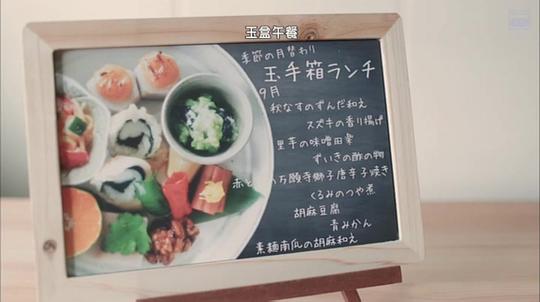 玉盒午餐
季節の月替わり
玉手箱ランチ
9月
秋なすのずんだ和え
スズキの香り揚げ
里芋の味噌田楽
ずいきの酢の物
万願寺獅子唐辛子焼き
くるみのつや煮
胡麻豆腐
青みかん
素麺南瓜の胡麻和え